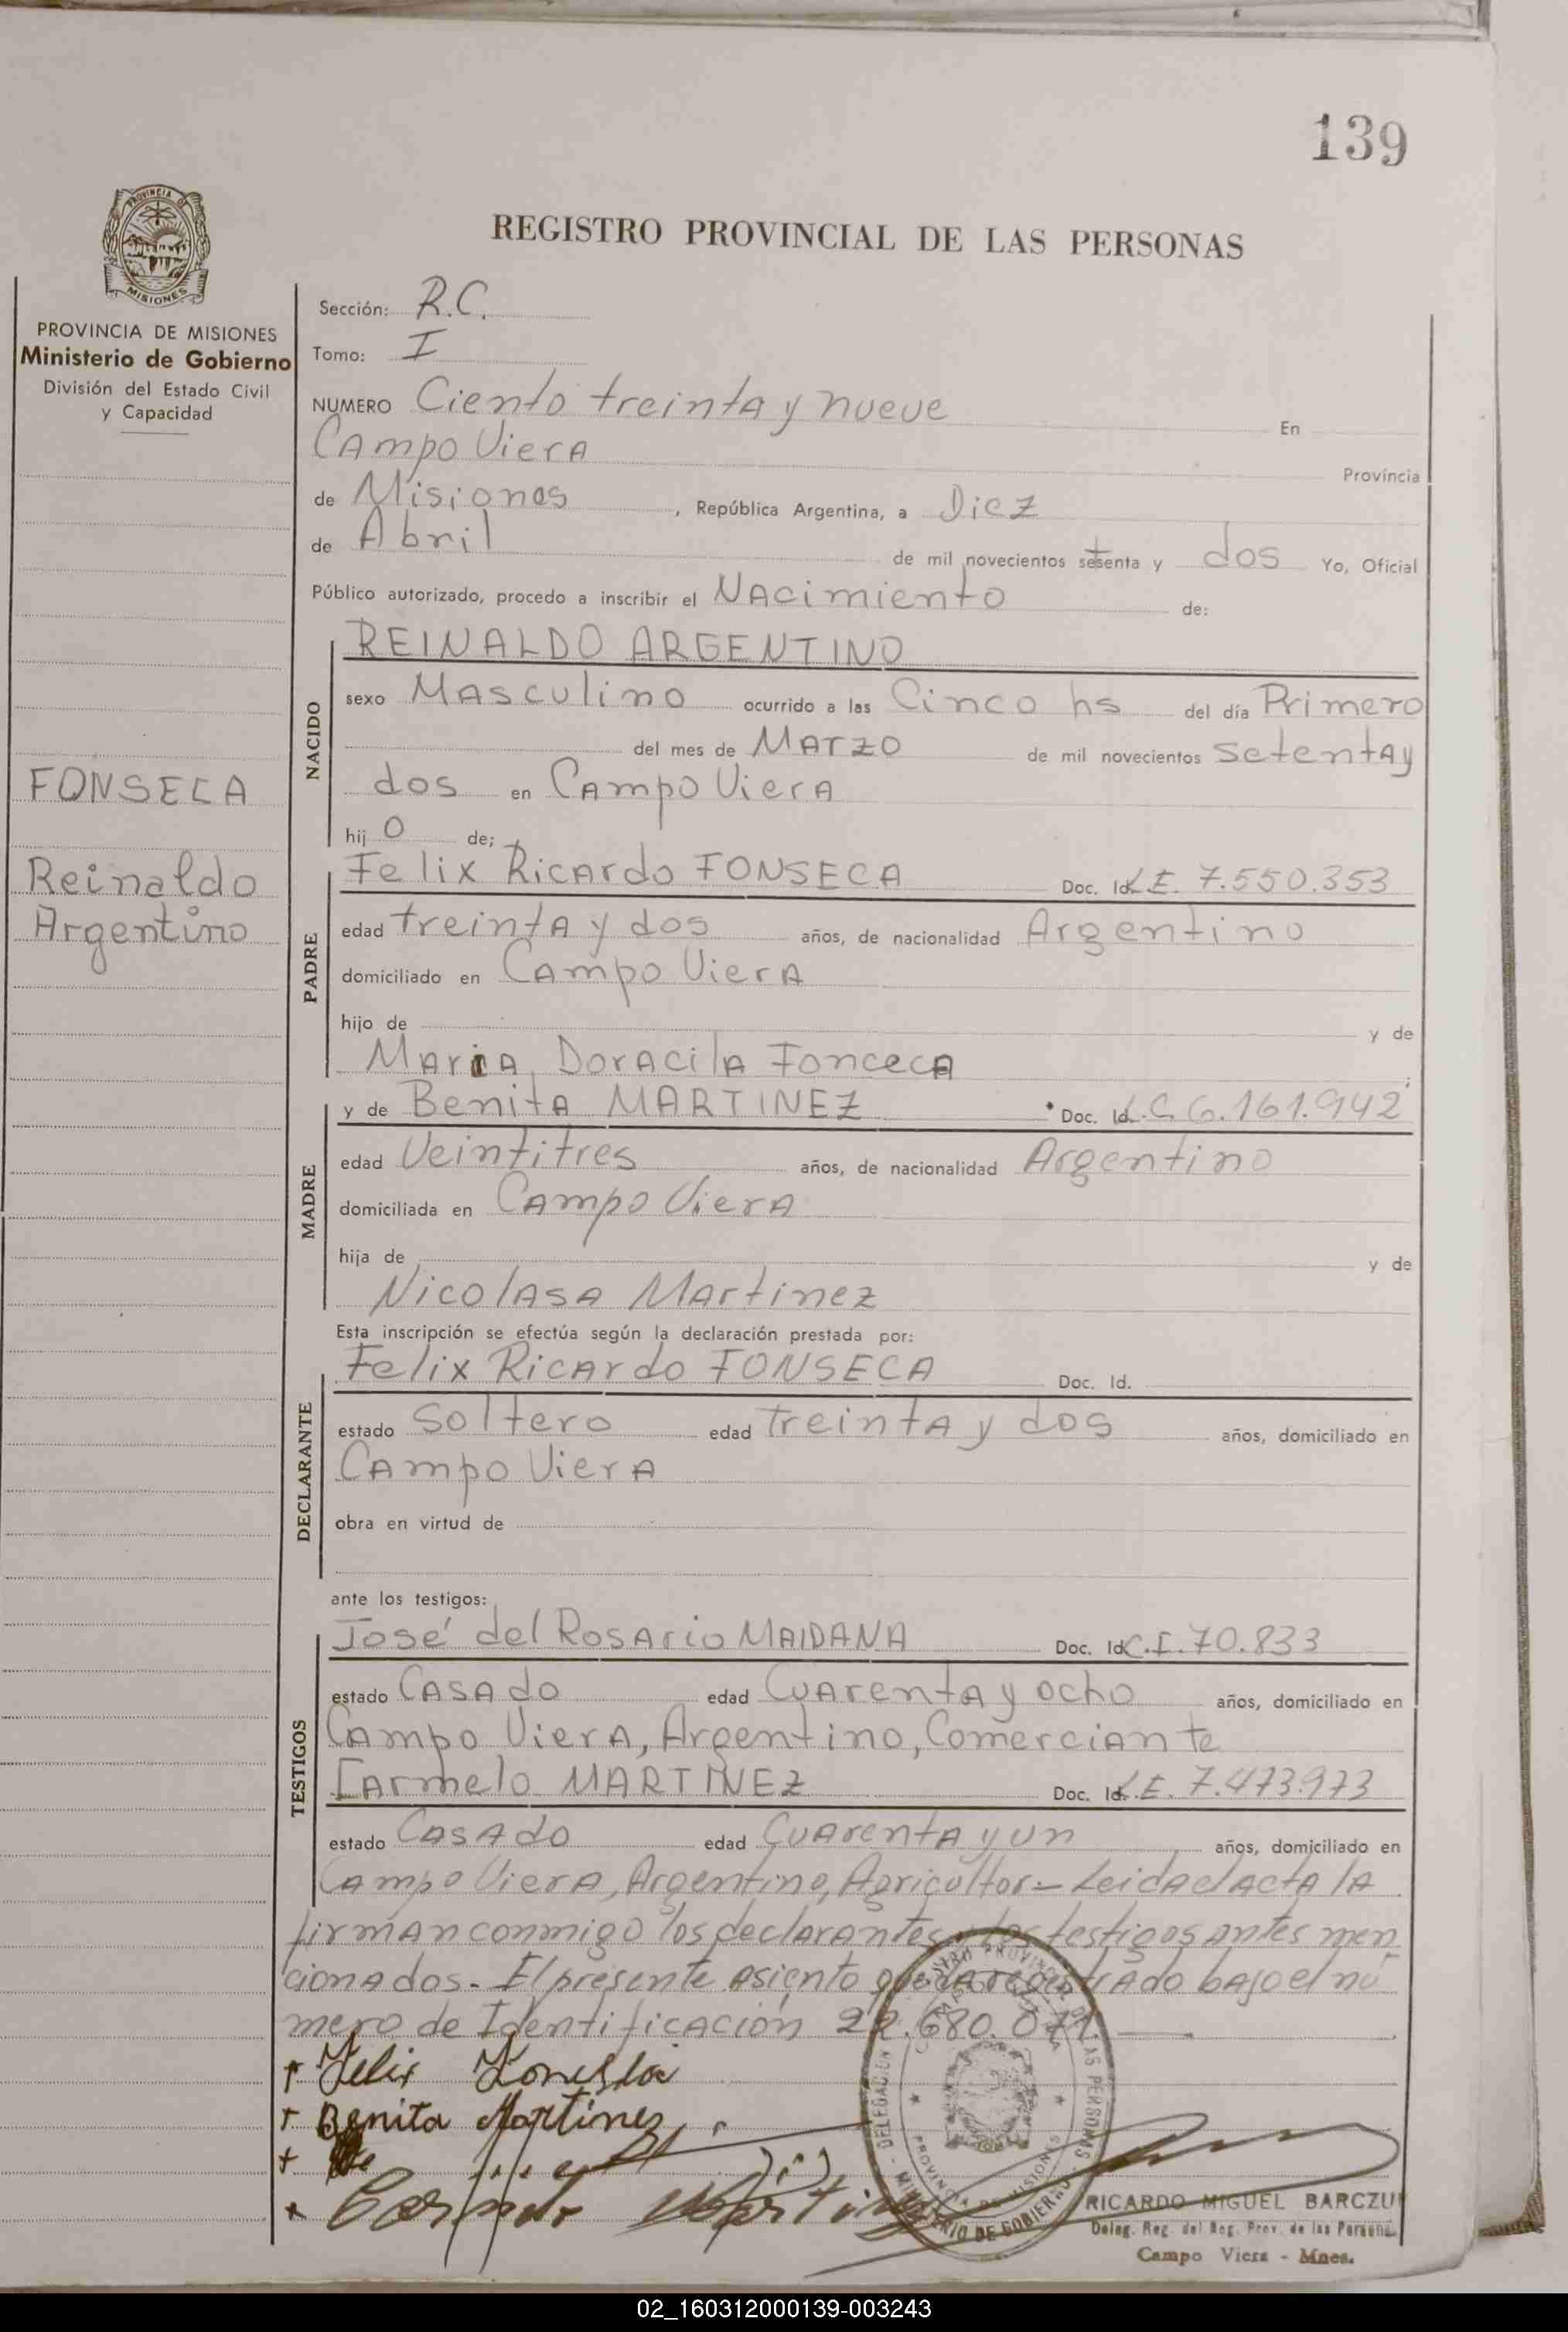 139
PROVINCIA DE
MISIONES
REGISTRO PROVINCIAL DE LAS PERSONAS
PROVINCIA DE MISIONES
Ministerio de Gobierno
División del Estado Civil
y Capacidad
FONSECA
Reinaldo
Argentino
Sección: R.C.
Tomo: I
NUMERO Ciento treinta y nueve En
Campo Viera Provincia
de Misiones, República Argentina, a Diez
de Abril de mil novecientos setenta y dos Yo, Oficial
Público autorizado, procedo a inscribir el Nacimiento de:
NACIDO
REINALDO ARGENTINO
sexo Masculino ocurrido a las Cinco hs del día Primero
del mes de Marzo de mil novecientos setenta y
dos en Campo Viera
hij o de;
PADRE
Felix Ricardo FONSECA Doc. Id. L.E. 7.550.353
edad treinta y dos años, de nacionalidad Argentino
domiciliado en Campo Viera
hijo de y de
Maria Doracila Fonceca
MADRE
y de Benita MARTINEZ Doc. Id. L.C. 6.161.942
edad Veintitres años, de nacionalidad Argentino
domiciliada en Campo Viera
hija de y de
Nicolasa Martinez
Esta inscripción se efectúa según la declaración prestada por:
DECLARANTE
Felix Ricardo FONSECA Doc. Id.
estado Soltero edad treinta y dos años, domiciliado en
Campo Viera
obra en virtud de
ante los testigos:
TESTIGOS
José del Rosario MAIDANA Doc. Id. C.I. 70.833
estado Casado edad Cuarenta y ocho años, domiciliado en
Campo Viera, Argentino, Comerciante
Carmelo MARTINEZ Doc. Id. L.E. 7.473.973
estado Casado edad Cuarenta y un años, domiciliado en
Campo Viera, Argentino, Agricultor.- Leida el acta la
firman conmigo los declarantes y los testigos antes men
cionados.- El presente asiento queda registrado bajo el nú
mero de Identificación 22.680.071.
+ Felix
+ Benita Martines
+
+ Martinez
DELEGACION
PROVINCIAL DE LAS PERSONAS
PROVINCIA DE MISIONES
MINISTERIO DE GOBIERNO
RICARDO MIGUEL BARCZUK
Deleg. Reg. del Reg. Prov. de las Person.
Campo Viera - Mnes.
02_160312000139-003243